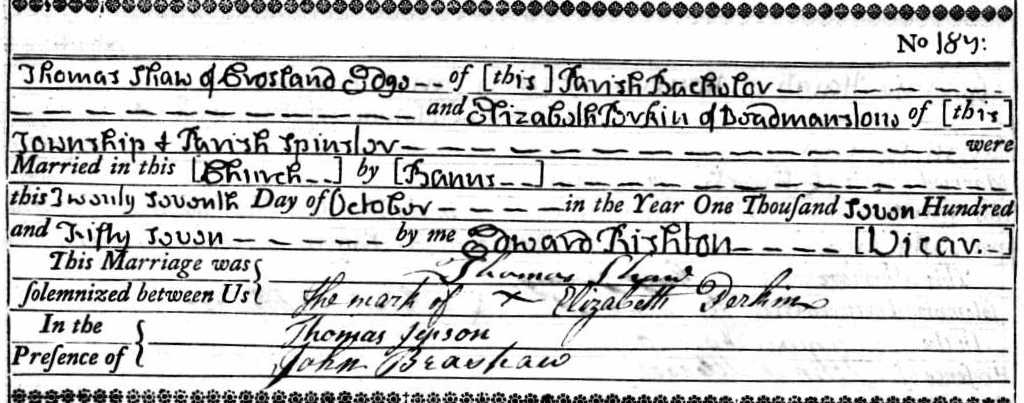 No 187:
Thomas Shaw of Crosland Edge -- of [this] Parish Bachelor
and Elizabeth Perkin of Deadmanstone of [this]
Township & Parish Spinster were
Married in this [Church --] by [Banns --]
this Twenty Seventh Day of October in the Year One Thouſand Seven Hundred
and Fifty Seven by me Edward Rishton [Vicar -]
This Marriage was Thomas Shaw
ſolemnized between Us the mark of x Elizabeth Perkin
In the Thomas Jepson
Preſence of John Bearshaw